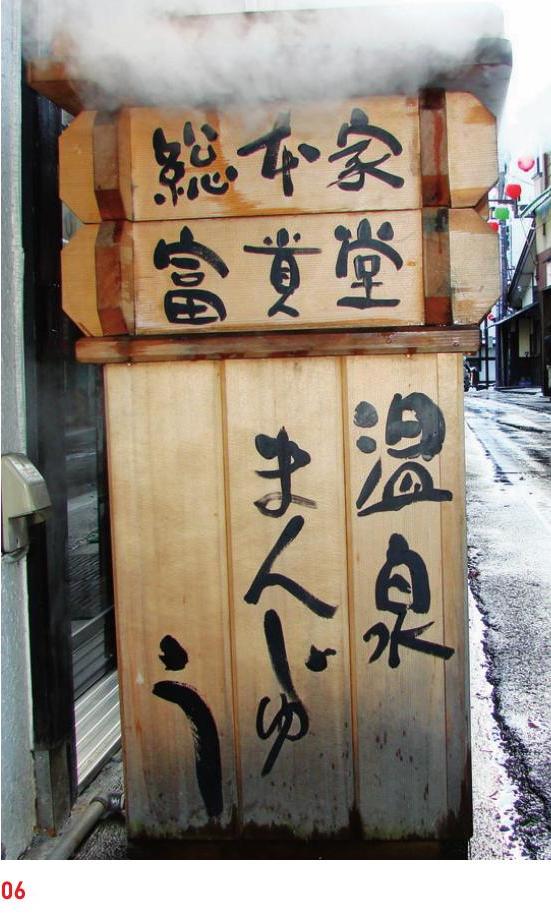 総本家
富貴堂
温泉
まんじゅ
う
06